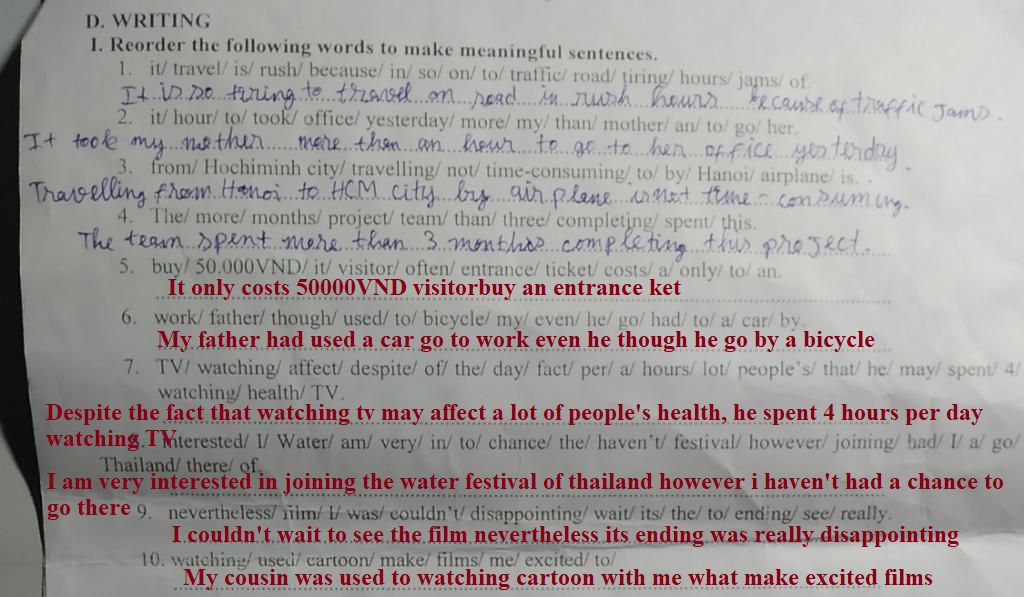 D. WRITING
I. Reorder the following words to make meaningful sentences.
1. it/ travel/ is/ rush/ because/ in/ so/ on/ to/ traffic/ road/ tiring/ hours/ jams/ of.
It is so tiring to travel on road in rush hours because of traffic jams.
2. it/ hour/ to/ took/ office/ yesterday/ more/ my/ than/ mother/ an/ to/ go/ her.
It took my mother more than an hour to go to her office yesterday.
3. from/ Hochiminh city/ travelling/ not/ time-consuming/ to/ by/ Hanoi/ airplane/ is.
Travelling from Hanoi to HCM city by airplane is not time-consuming.
4. The/ more/ months/ project/ team/ than/ three/ completing/ spent/ this.
The team spent more than 3 months completing this project.
5. buy/ 50.000VND/ it/ visitor/ often/ entrance/ ticket/ costs/ a/ only/ to/ an.
It only costs 50000VND visitorbuy an entrance ket
6. work/ father/ though/ used/ to/ bicycle/ my/ even/ he/ go/ had/ to/ a/ car/ by.
My father had used a car go to work even he though he go by a bicycle
7. TV/ watching/ affect/ despite/ of/ the/ day/ fact/ per/ a/ hours/ lot/ people's/ that/ he/ may/ spent/ 4/
watching/ health/ TV.
Despite the fact that watching tv may affect a lot of people's health, he spent 4 hours per day
watching TV
interested/ I/ Water/ am/ very/ in/ to/ chance/ the/ haven't/ festival/ however/ joining/ had/ I/ a/ go/
Thailand/ there/ of.
I am very interested in joining the water festival of thailand however i haven't had a chance to
go there
9. nevertheless/ film/ I/ was/ couldn't/ disappointing/ wait/ its/ the/ to/ ending/ see/ really.
I couldn't wait to see the film nevertheless its ending was really disappointing
10. watching/ used/ cartoon/ make/ films/ me/ excited/ to/
My cousin was used to watching cartoon with me what make excited films